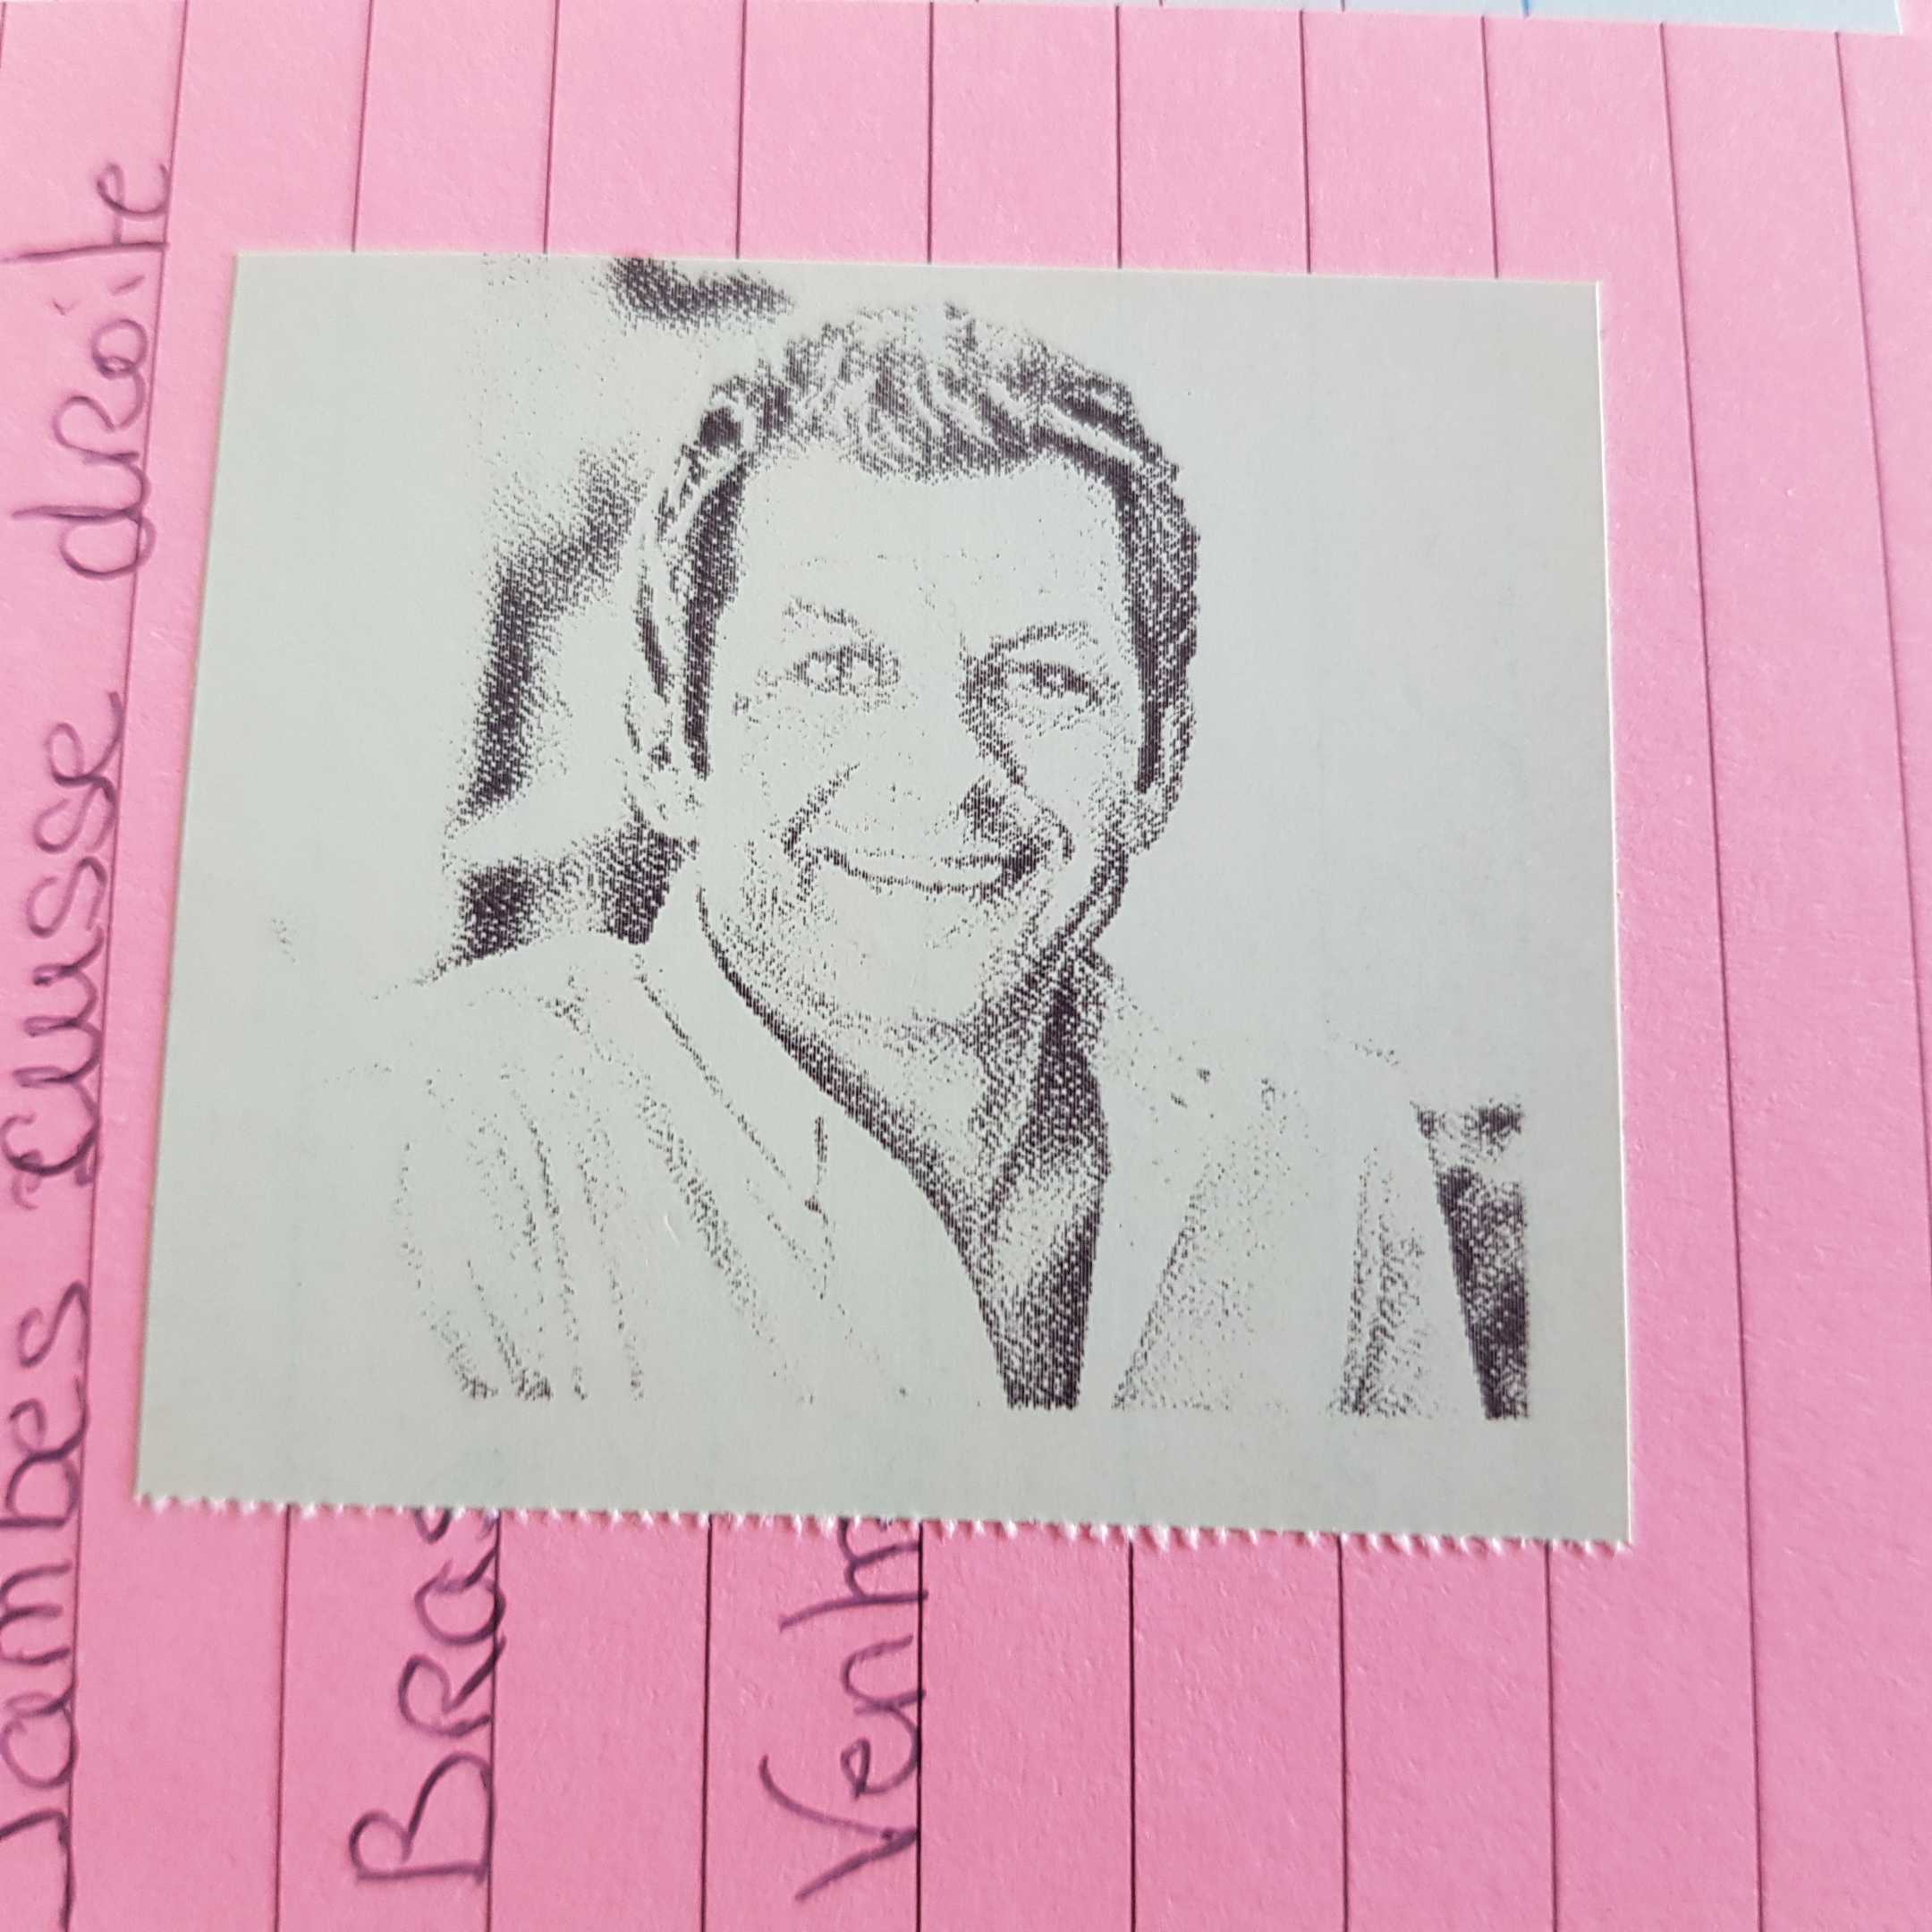 Jambes Cuisse droite
BRas